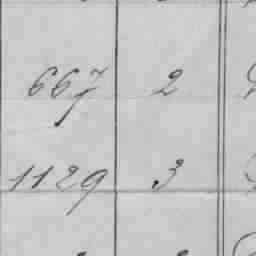 667 2
1129 3